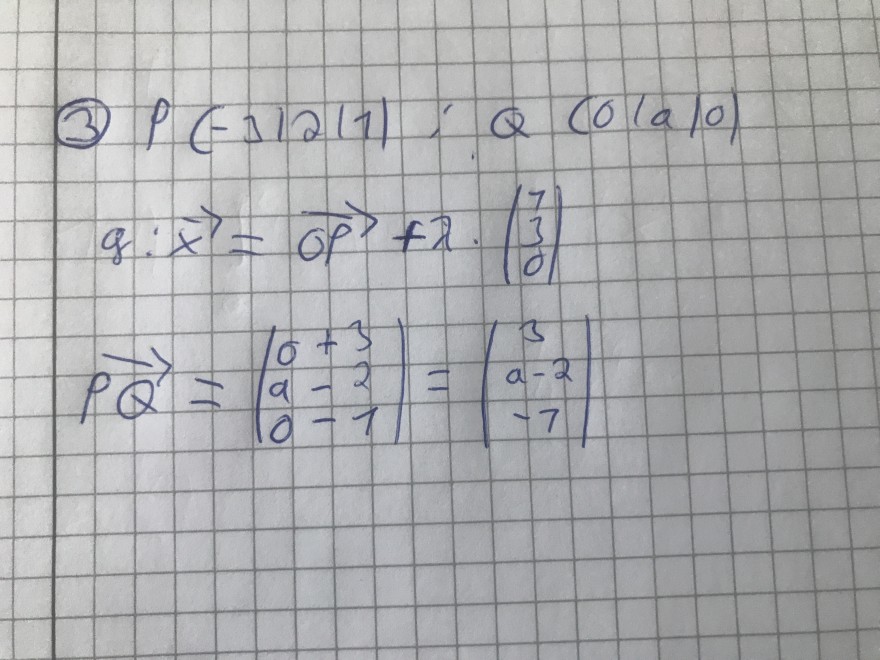 ③ P (-3|2|1) ; Q (0|a|0)
g : x⃗ = OP⃗ + λ · (1 3 0)
PQ⃗ = (0 + 3 a - 2 0 - 1) = (3 a - 2 -1)